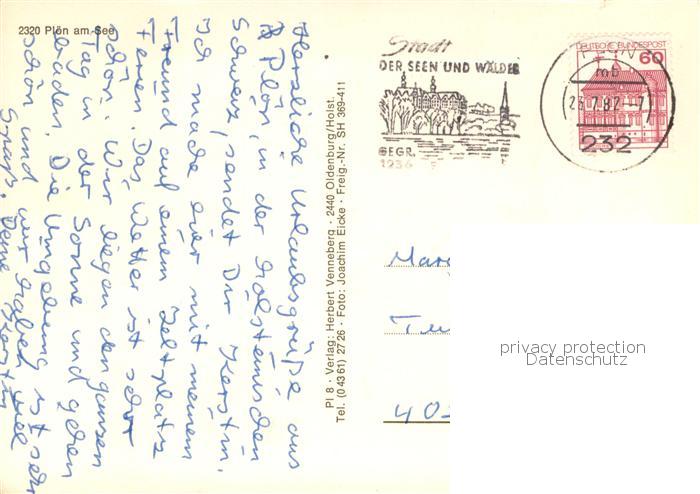 2320 Plön am See
Herzliche Urlaubsgrüße aus
Plön, in der Holsteinischen
Schweiz, sendet Dir Kerstin.
Ich mache hier mit meinem
Freund auf einem Zeltplatz
Ferien. Das Wetter ist sehr
schön. Wir liegen den ganzen
Tag in der Sonne und gehen
baden. Die Umgebung ist sehr
schön und wir haben viel
Spaß. Deine Kerstin
Pl 8 · Verlag: Herbert Venneberg · 2440 Oldenburg/Holst.
Tel. (0 43 61) 27 26 · Foto: Joachim Eicke · Freig.-Nr. SH 369-411
Stadt
DER SEEN UND WÄLDER
GEGR.
1236
DEUTSCHE BUNDESPOST
60
23.7.82-7
232
40
privacy protection
Datenschutz